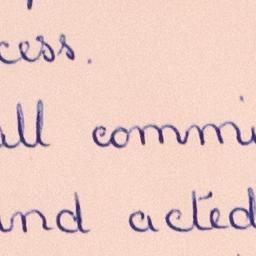 cess.
all commi
and acted